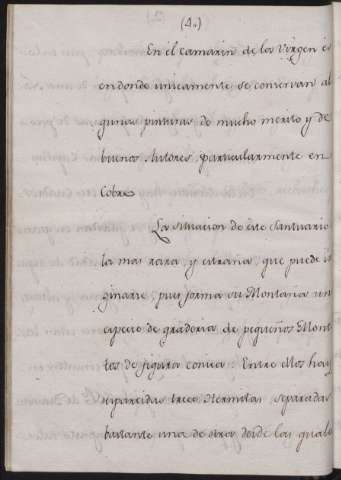 (4.)
En el camarin de la Virgen es
en donde unicamente se conservan al
gunas pinturas de mucho merito y de
buenos Autores, particularmente en
Cobre.
La situacion de este Santuario
la mas rara, y estraña, que puede
ginarse, pues forma su Montaña un
especie de graderia de pequeños Mont
tes de figura conica: Entre ellos hay
esparcidas trece Hermitas, separadas
bastante una de otra, desde las quale